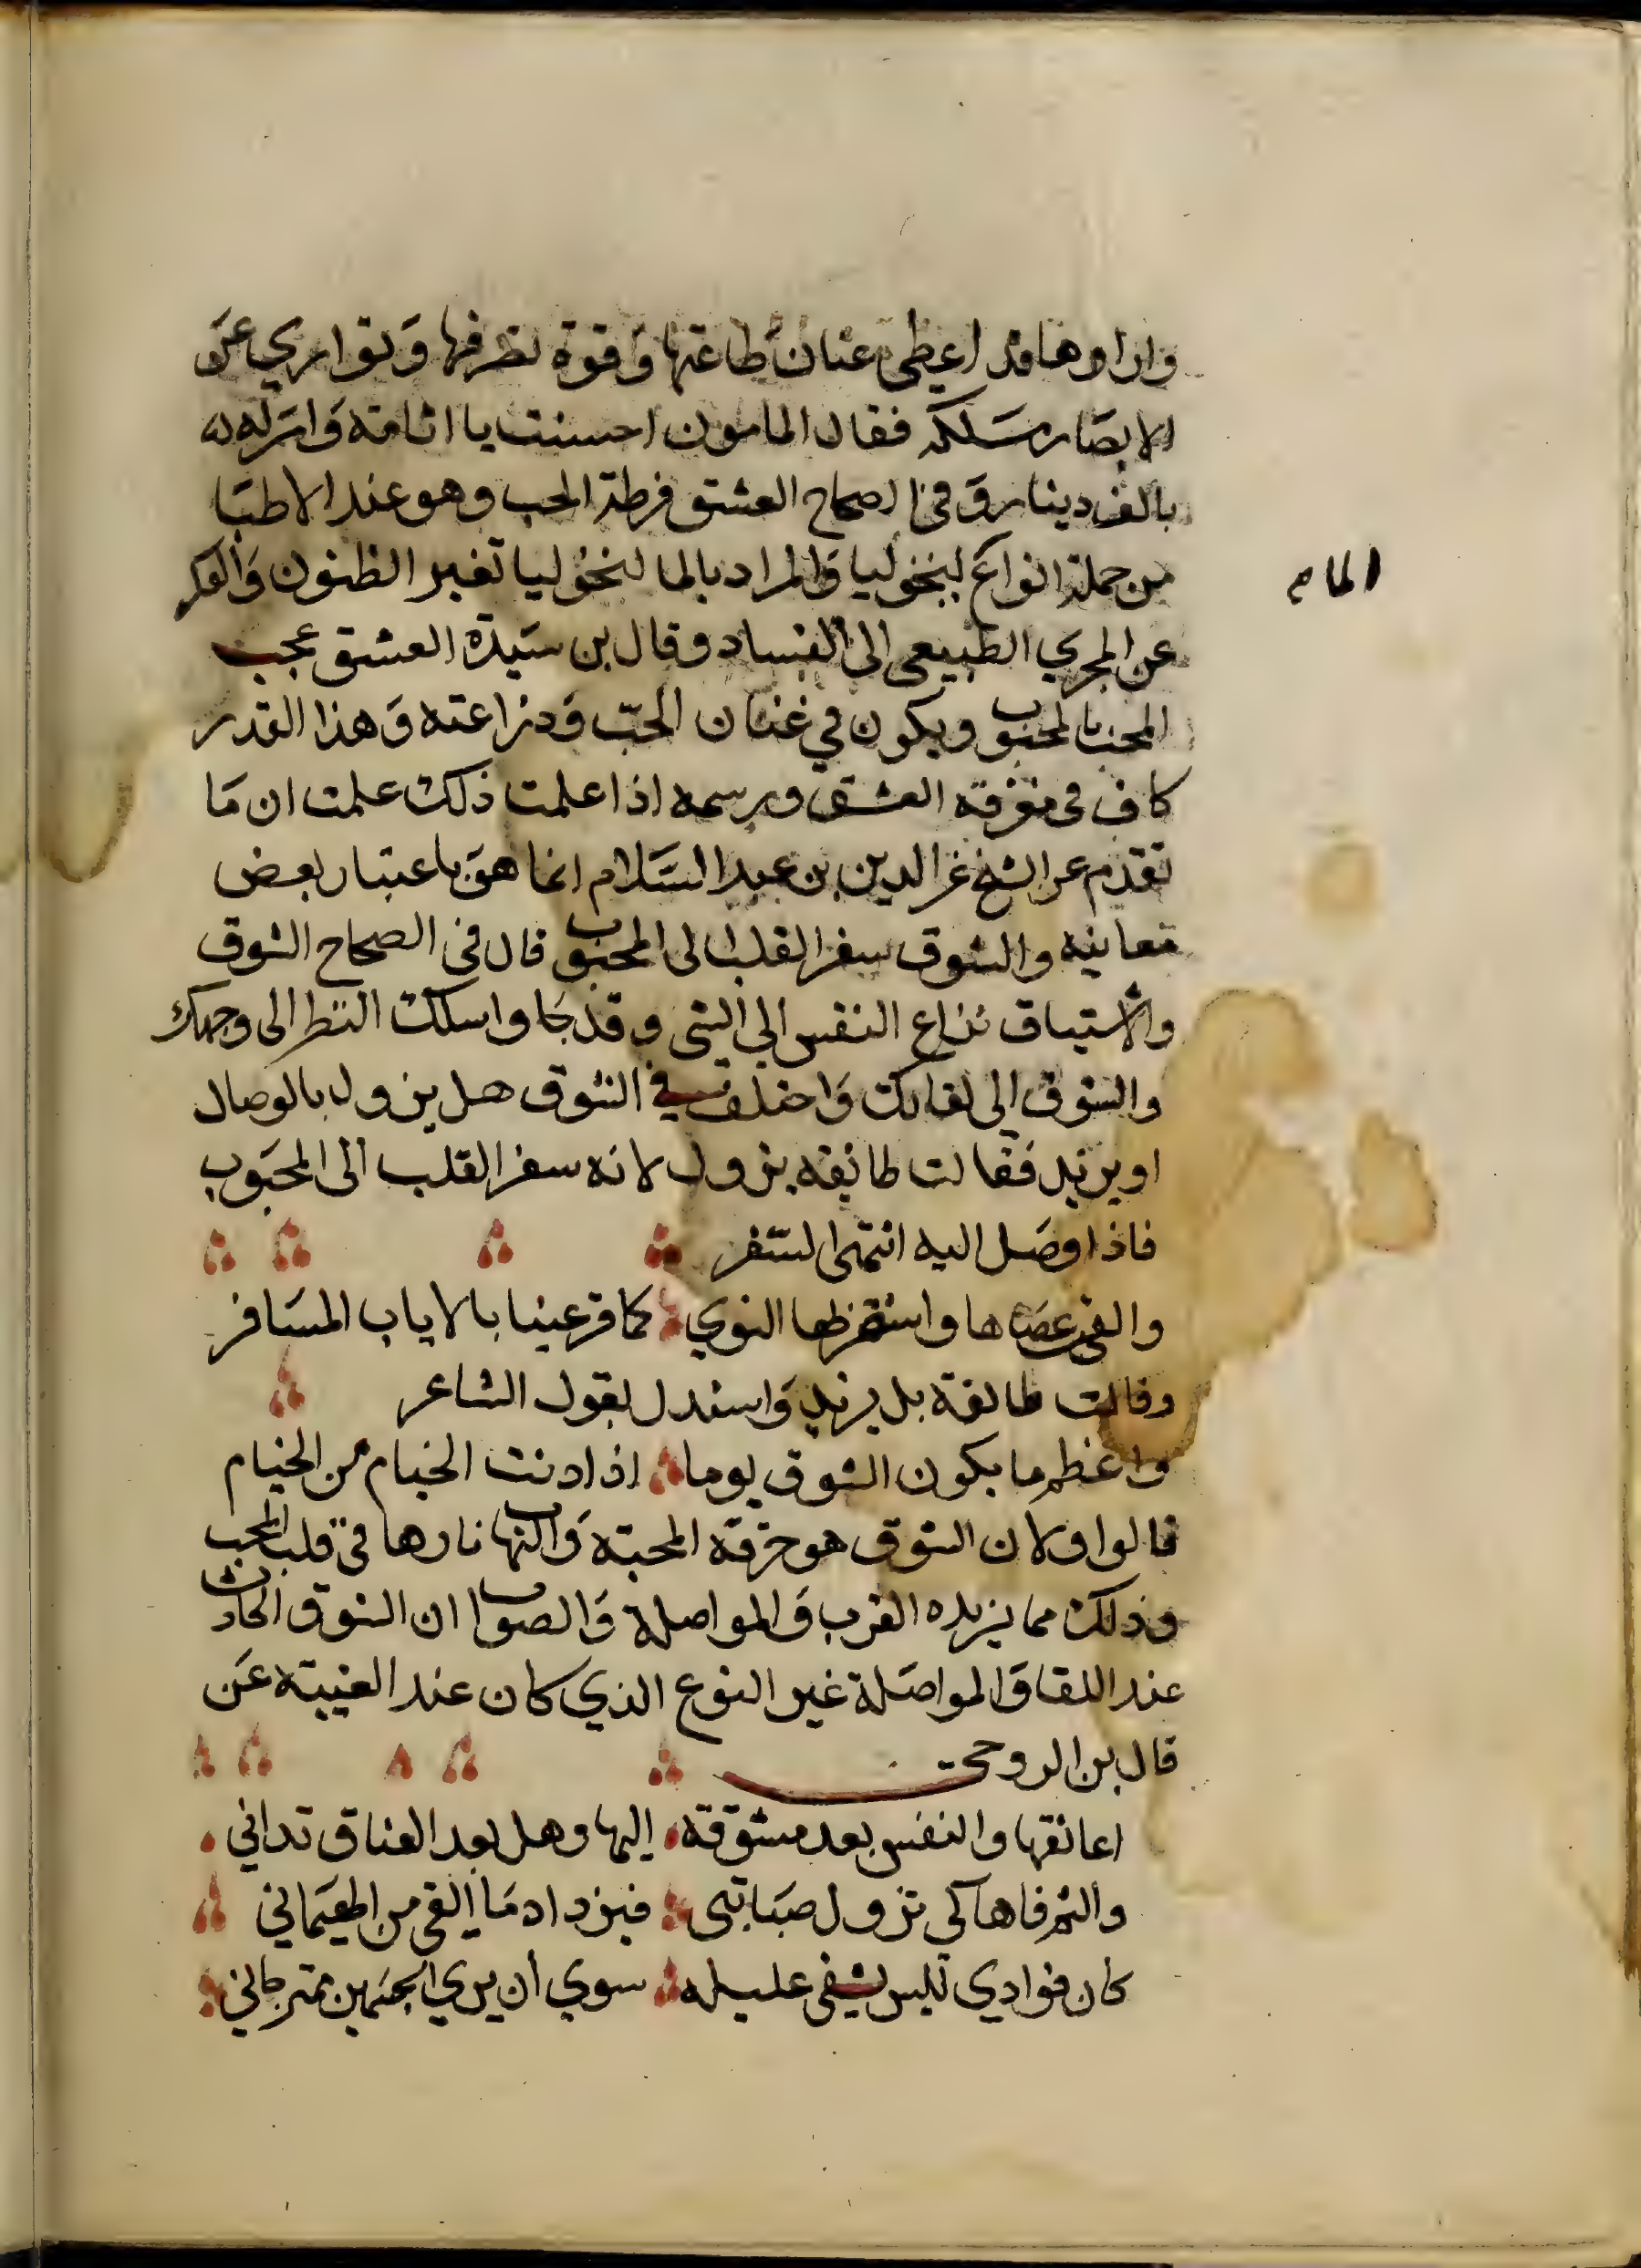 واراوها قد اعطى عنان طاعتها وقوة تصرفها وتواري عن
الابصار مسلكه فقال المامون احسنت يا اثامة وامر له
بالف دينار وفي الصحاح العشق فرطة الحب وهو عند الاطبا
من جملة انواع لنخوليا والمراد بالما لنخوليا تغير الظنون والفكر
المام
عن المجري الطبيعي الى الفساد وقال بن سيدة العشق عجب
المحب بالمحبوب ويكون في عفاف الحب ودعارته وهذا القدر
كاف في معرفة العشق ورسمه اذا علمت ذلك علمت ان ما
تقدم عن الشيخ عز الدين بن عبد السلام انما هو باعتبار بعض
معانيه والشوق سفر القلب الى المحبوب قال في الصحاح الشوق
والاشتياق نزاع النفس الي الشي وقد جا واسلك النظر الى وجهك
والشوق الى لقايك واختلف في الشوق هل يزول بالوصال
او يزيد فقالت طائفه يزول لانه سفر القلب الى المحبوب
فاذا وصل اليه انتهى السفر
والقى عصاها واستقر بها النوي كما قر عينا بالاياب المسافر
وقالت طائفة بل يزيد واستدل بقول الشاعر
واعظم ما يكون الشوق يوما اذا دنت الخيام من الخيام
قالوا ولان الشوق هو حرقة المحبة والتهاب نارها في قلب المحب
وذلك مما يزيده القرب والمواصلة والصواب ان الشوق الحادث
عند اللقا والمواصلة غير النوع الذي كان عند الغيبة عن
قال بن الرومي
اعانقها والنفس بعد مشوقة اليها وهل بعد العناق تداني
والثم فاها كي تزول صبابتي فيزداد ما القى من الهيماني
كان فوادي ليس يشفى عليله سوي ان يري الجسمين يمتزجاني